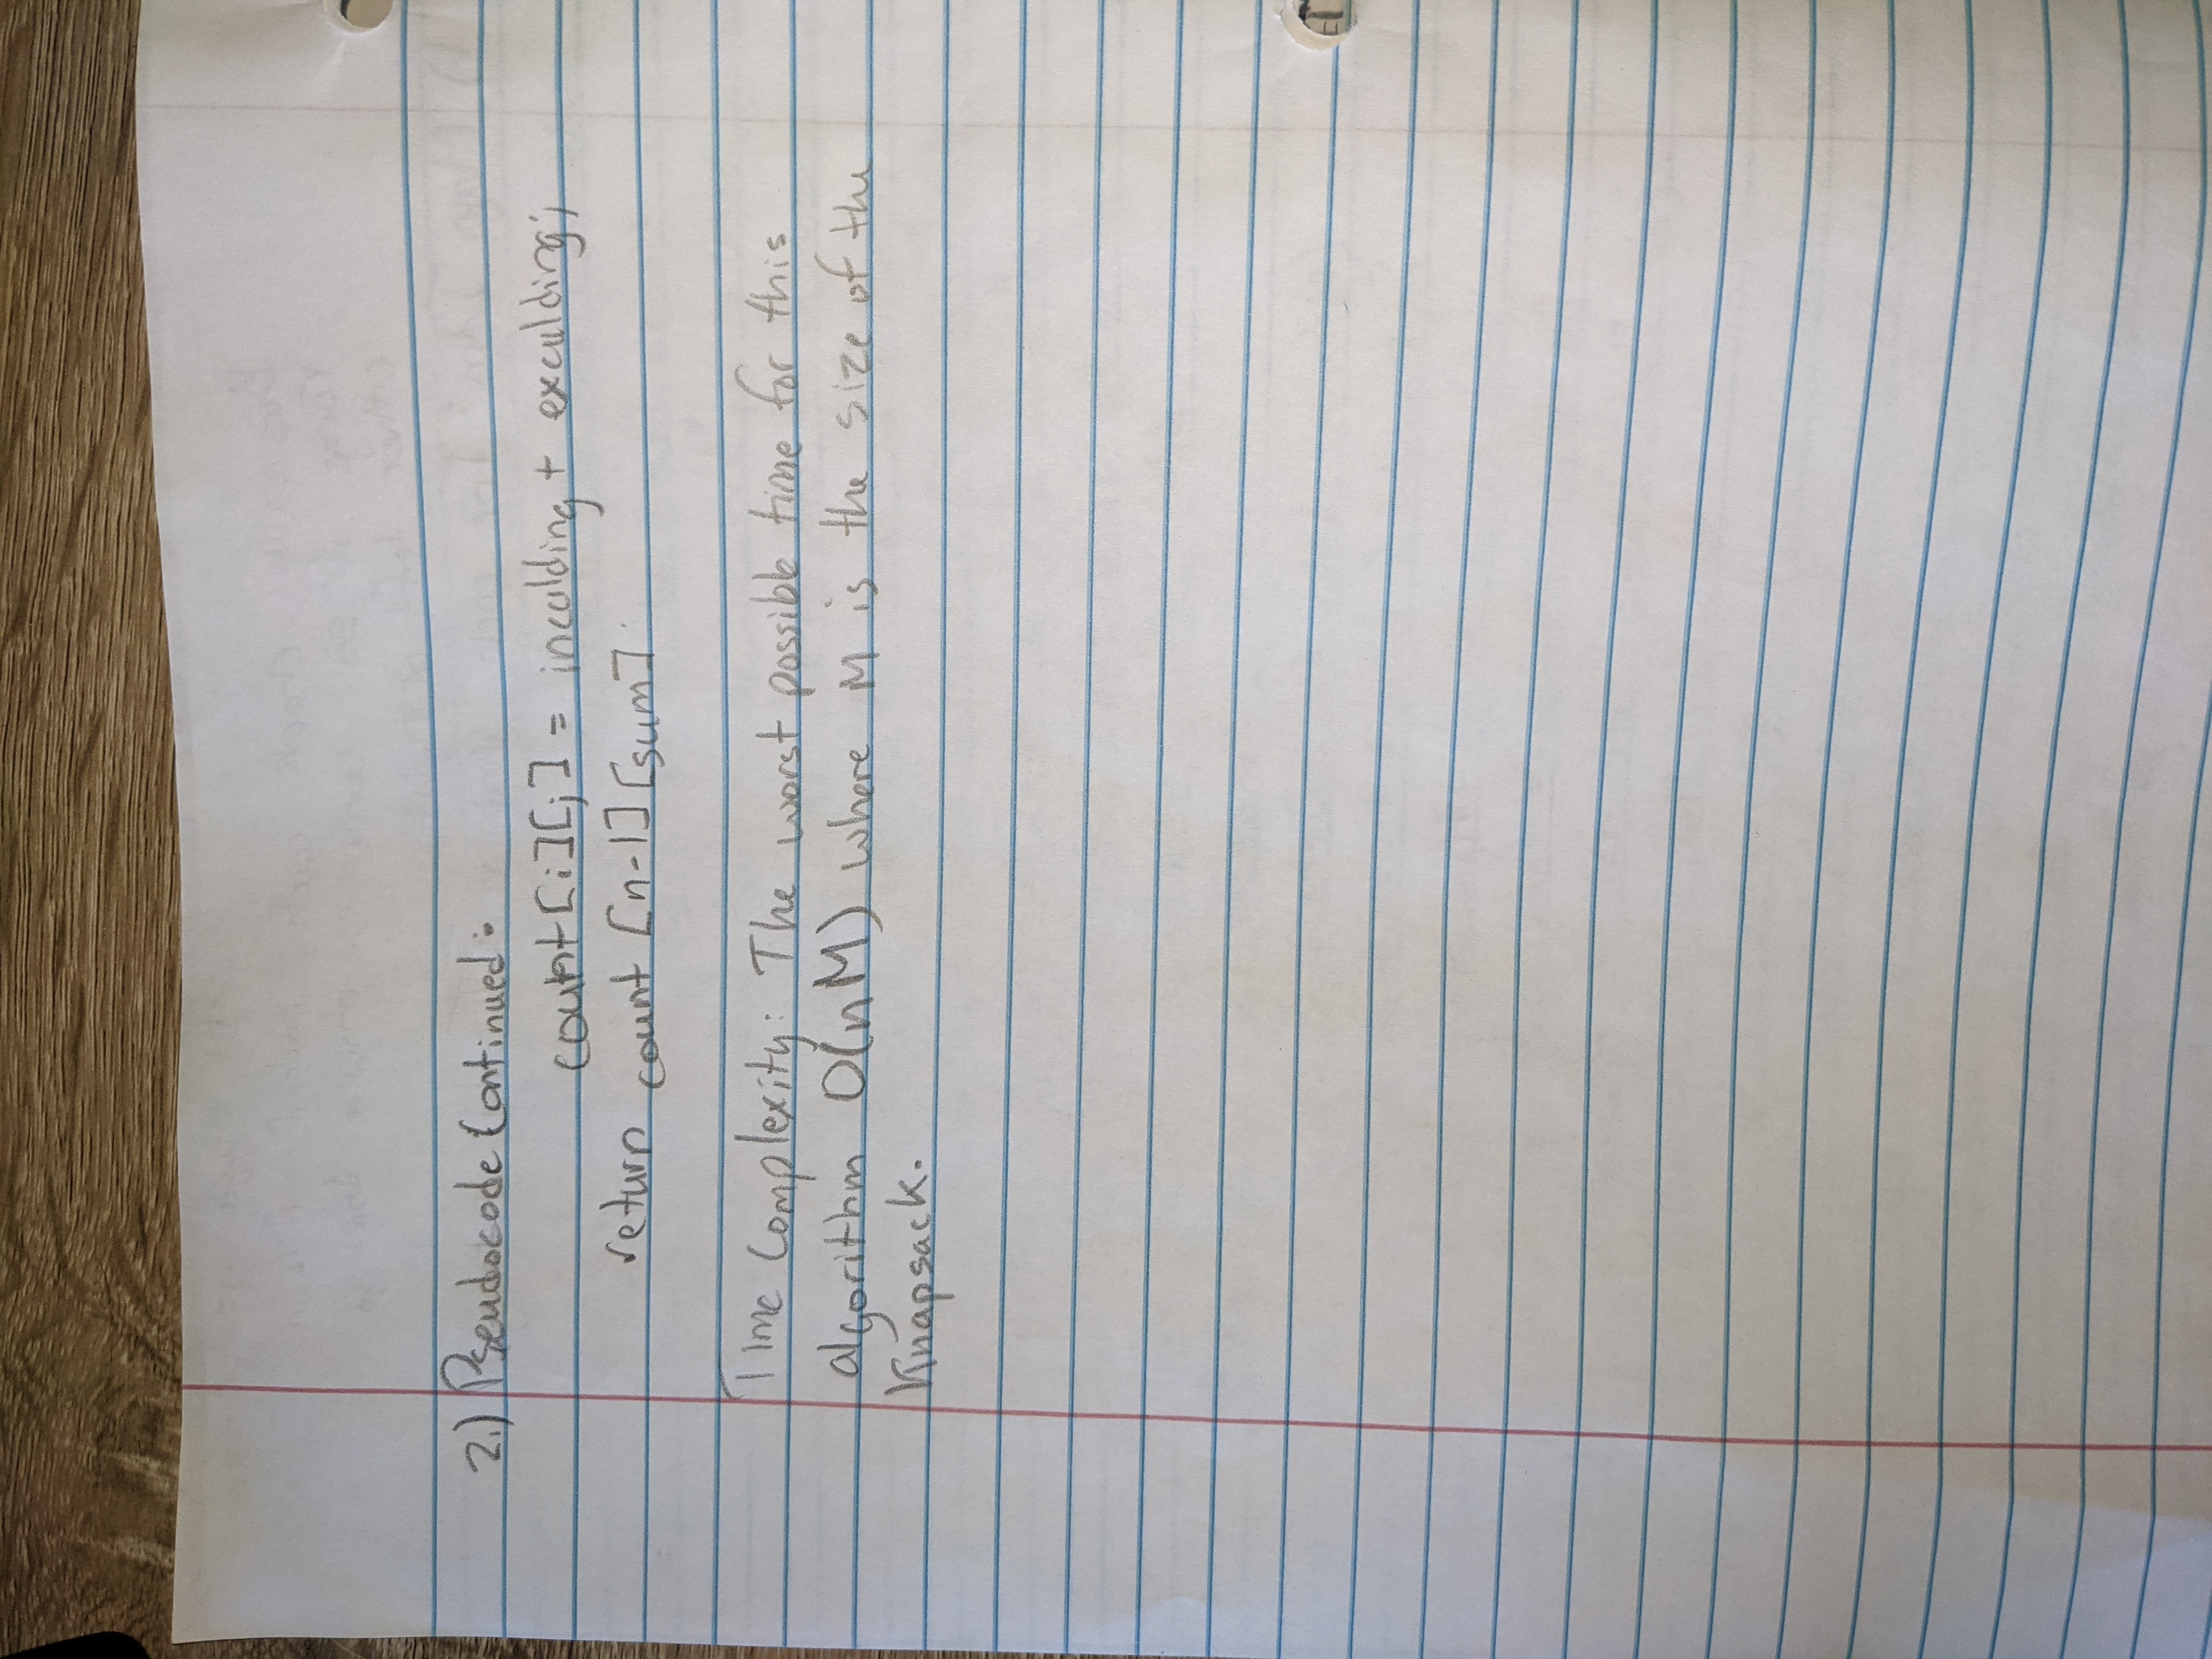 2.) Pseudocode Continued:
count[i][j] = inculding + exculding;
return count [n-1][sum]
Time Complexity: The worst possible time for this
algorithm O(nM) where M is the size of the
Knapsack.